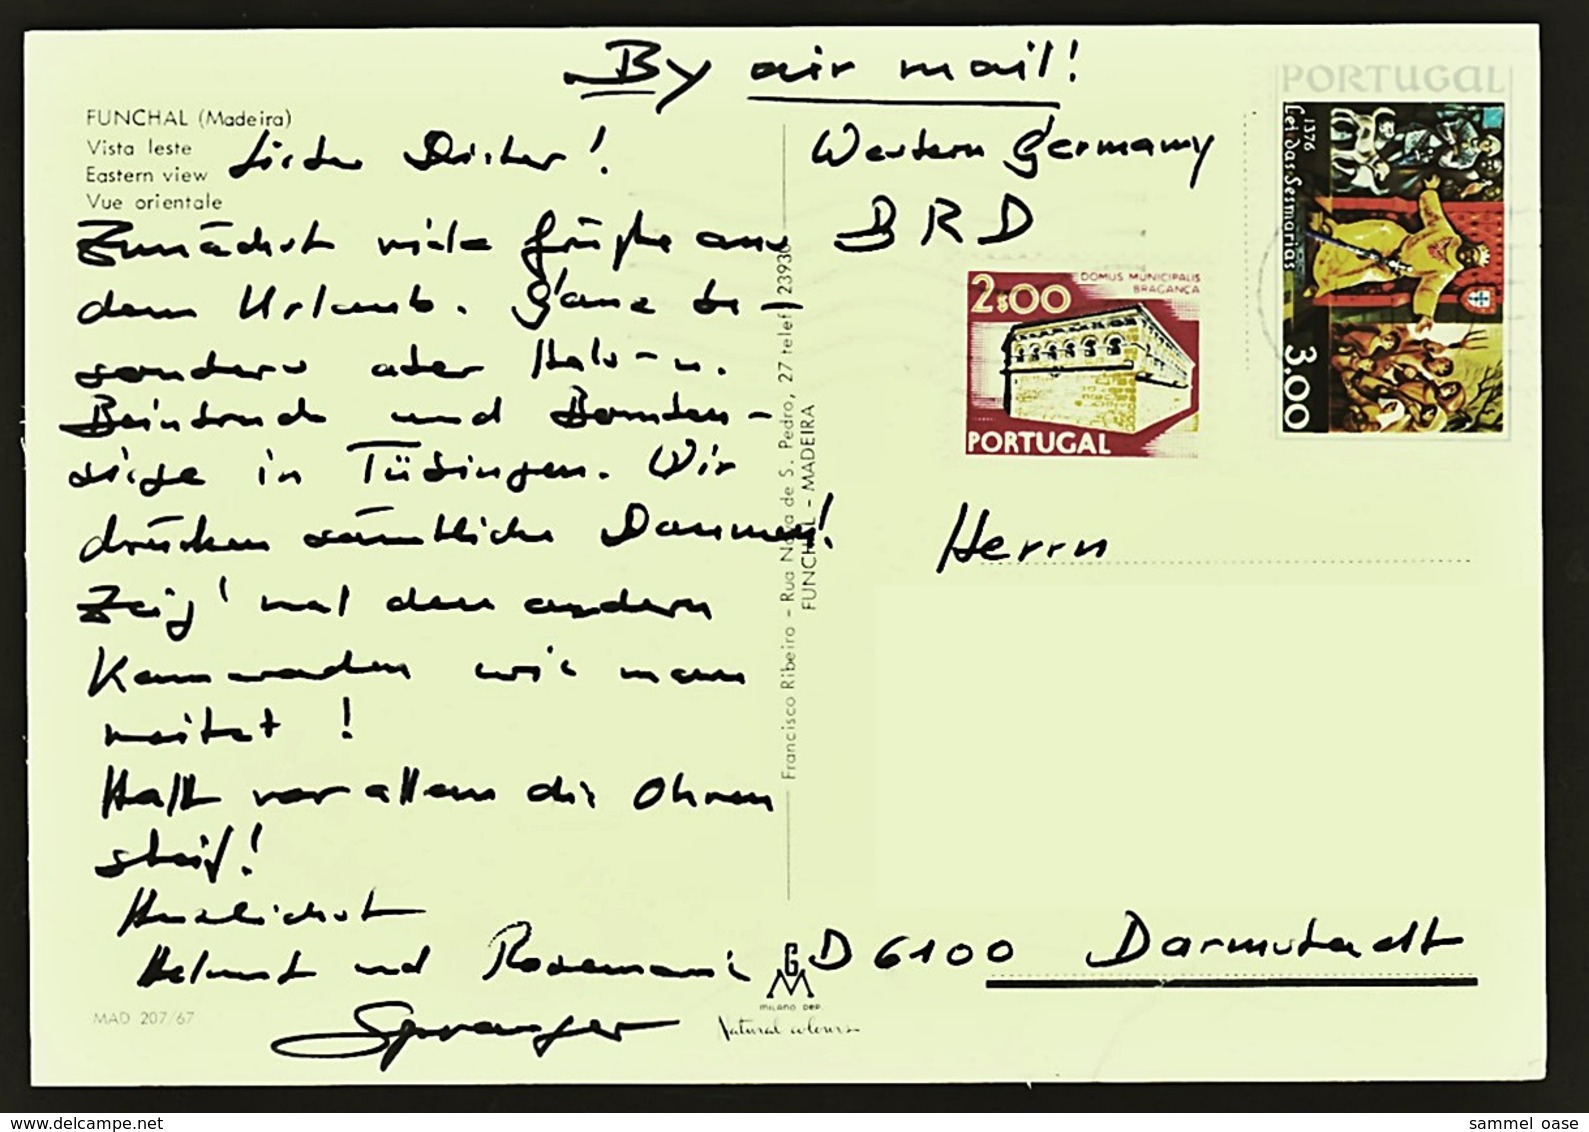 By air mail!
FUNCHAL (Madeira)
Vista leste
Eastern view
Vue orientale
Lieber Dieter!
Zunächst viele Grüße aus
dem Urlaub. Ganz be-
sonders aber Hals- u.
Beinbruch und Bomben-
siege in Tübingen. Wir
drücken sämtliche Daumen!
Zeig' mal den andern
Kameraden wie man
reitet!
Halt vor allem die Ohren
steif!
Herzlichst
Helmut und Rosemarie
Sprenger
MAD 207/67
Francisco Ribeiro - Rua Nova de S. Pedro, 27 telef. 23930
FUNCHAL - MADEIRA
GM
MILANO DEP.
Natural colours
Western Germany
BRD
2$00
DOMUS MUNICIPALIS
BRAGANÇA
PORTUGAL
PORTUGAL
1376
Lei das Sesmarias
3.00
Herrn
D 6100 Darmstadt
www.delcampe.net
sammel_oase